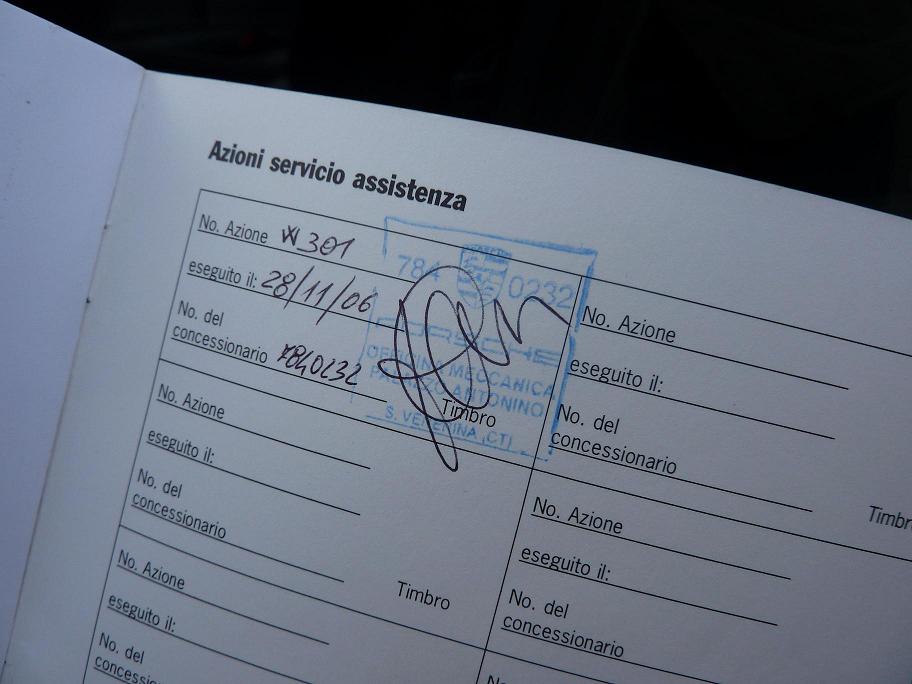 Azioni servicio assistenza
No. Azione W301
eseguito il: 28/11/06
No. del
concessionario 7840232
784 0232
PORSCHE
OFFICINA MECCANICA
PALAZZO ANTONINO
S. VENERINA (CT)
Timbro
No. Azione
eseguito il:
No. del
concessionario
Timbro
No. Azione
eseguito il:
No. del
concessionario
Timbro
No. Azione
eseguito il:
No. del
concessionario
No. Azione
eseguito il:
No. del
concessionario
No. Azione